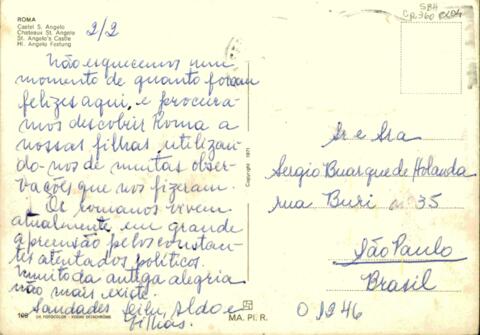 ROMA
Castel S. Angelo
Chateaux St. Angelo
St. Angelo's Castle
Hl. Angelo Festung
2/2
SBH
Cp.360
Não esquecemos nem
momento de quanto foram
felizes aqui, e procura-
mos descobrir Roma a
nossas filhas, utilizan-
do-nos de muitas obser-
vações que nos fizeram.
Os romanos vivem
atualmente, em grande
apreensão pelos constan-
tes atentados políticos.
Muito da antiga alegria
não mais existe.
Saudades Leila, Aldo e
filhas.
Sr e Sra
Sergio Buarque de Holanda
rua Buri nº 35
São Paulo
Brasil
01246
Copyright 1971
108
MA. PI. R.